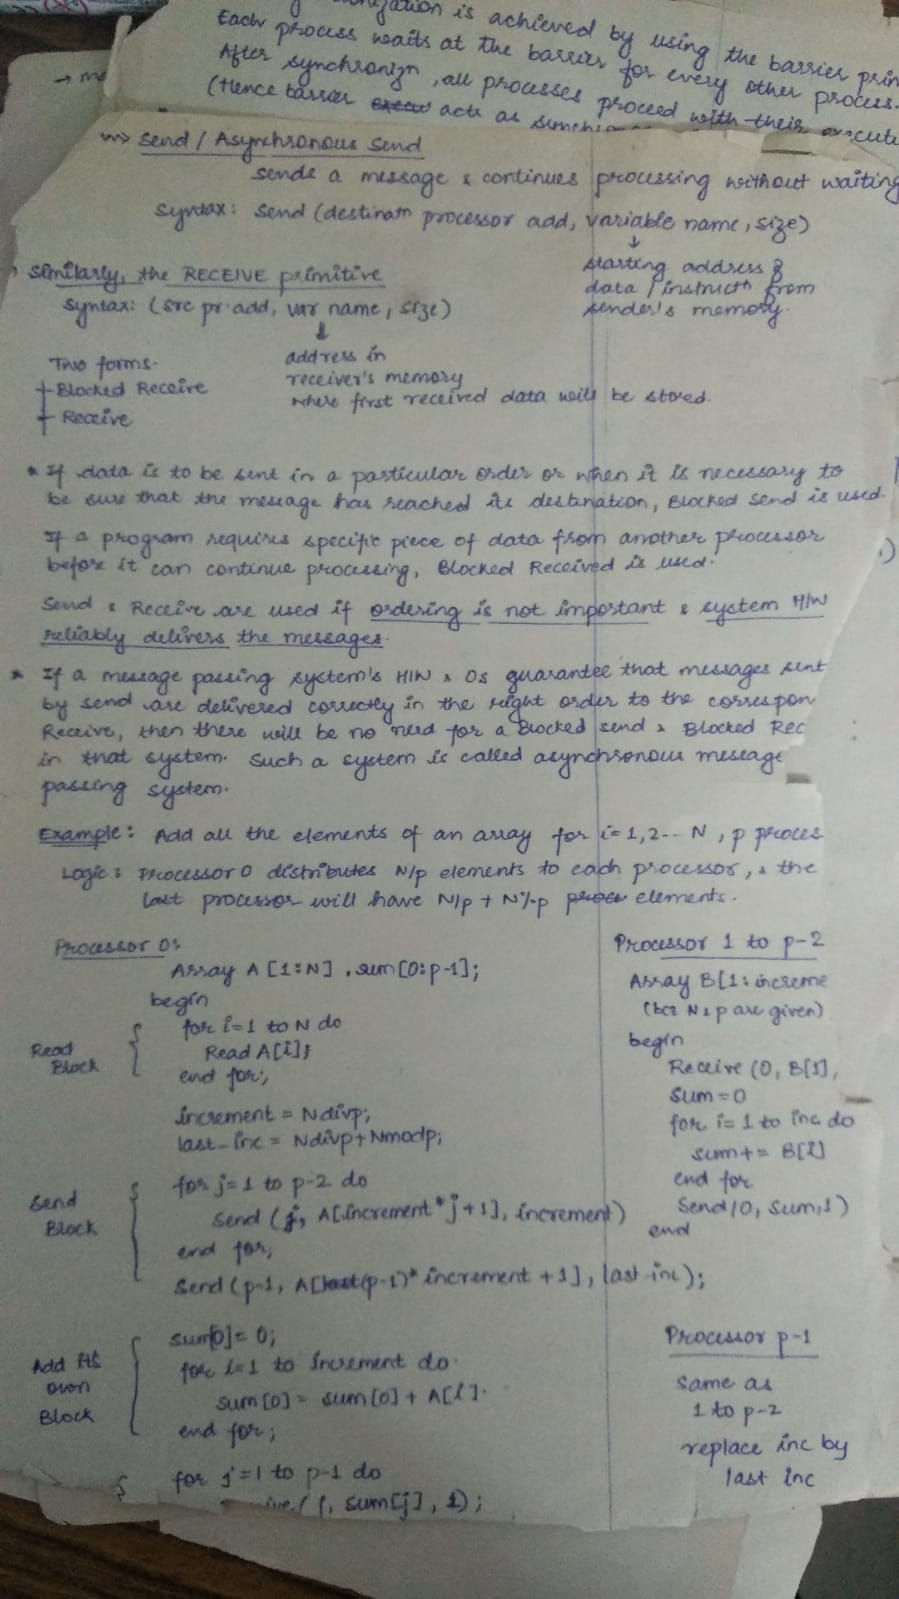 ization is achieved by using the barrier prim
Each process waits at the barrier for every other process.
After synchronizn, all processes proceed with their execute
(Hence barrier acts as
→ me
Send / Asynchronous Send
sends a message & continues processing without waiting
Syntax: Send (destinatn processor add, variable name, size)
↓
starting address of
data / instructn from
sender's memory.
Similarly, the RECEIVE primitive
Syntax: (src pr. add, var name, size)
↓
address in
receiver's memory
where first received data will be stored.
Two forms.
Blocked Receive
Receive
* If data is to be sent in a particular order or when it is necessary to
be sure that the message has reached its destination, Blocked Send is used.
If a program requires specific piece of data from another processor
before it can continue processing, Blocked Received is used.
Send & Receive are used if ordering is not important & system H/W
reliably delivers the messages.
* If a message passing system's H/W & OS guarantee that messages sent
by send are delivered correctly in the right order to the correspon
Receive, then there will be no need for a Blocked send & Blocked Rec
in that system. Such a system is called asynchronous message
passing system.
Example: Add all the elements of an array for i=1,2-- N, p proces
Logic: Processor 0 distributes N/p elements to each processor, & the
last processor will have N/p + N%p elements.
Processor 0:
Array A [1:N], sum[0:p-1];
begin
for i=1 to N do
Read A[i];
end for;
Read
Block
increment = Ndivp;
last_inc = Ndivp+Nmodp;
for j=1 to p-2 do
Send (j, A[increment*j+1], increment)
end for;
Send (p-1, A[(p-1)*increment +1], last-inc);
Send
Block
sum[0]= 0;
for i=1 to increment do
sum[0] = sum[0] + A[i].
end for;
Add its
own
Block
for j=1 to p-1 do
ive( j, sum[j], 1);
Processor 1 to p-2
Array B[1: increme
(bcz N & p are given)
begin
Receive (0, B[1],
sum=0
for i=1 to inc do
sum+= B[i]
end for
Send(0, sum,1)
end
Processor p-1
same as
1 to p-2
replace inc by
last inc